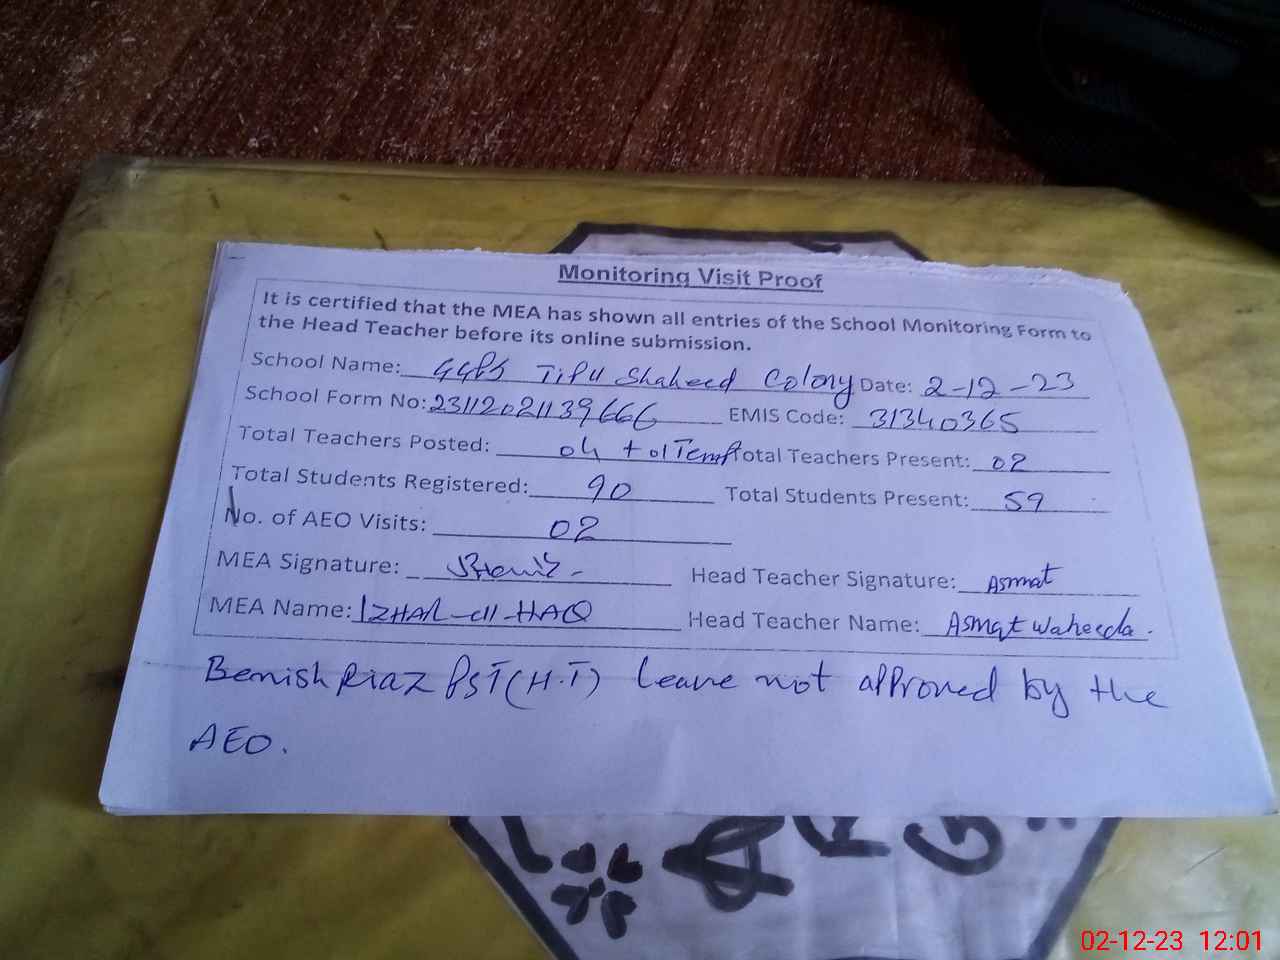 Monitoring Visit Proof
It is certified that the MEA has shown all entries of the School Monitoring Form to
the Head Teacher before its online submission.
School Name: GGPS Tipu Shaheed Colony Date: 2-12-23
School Form No: 23112021139666 EMIS Code: 31340365
Total Teachers Posted: 04 + 01 Temp Total Teachers Present: 02
Total Students Registered: 90 Total Students Present: 59
No. of AEO Visits: 02
MEA Signature: Head Teacher Signature: Asmat
MEA Name: IZHAR-ul-HAQ Head Teacher Name: Asmat Waheeda.
Benish Riaz PST(H.T) leave not approved by the
AEO.
02-12-23 12:01